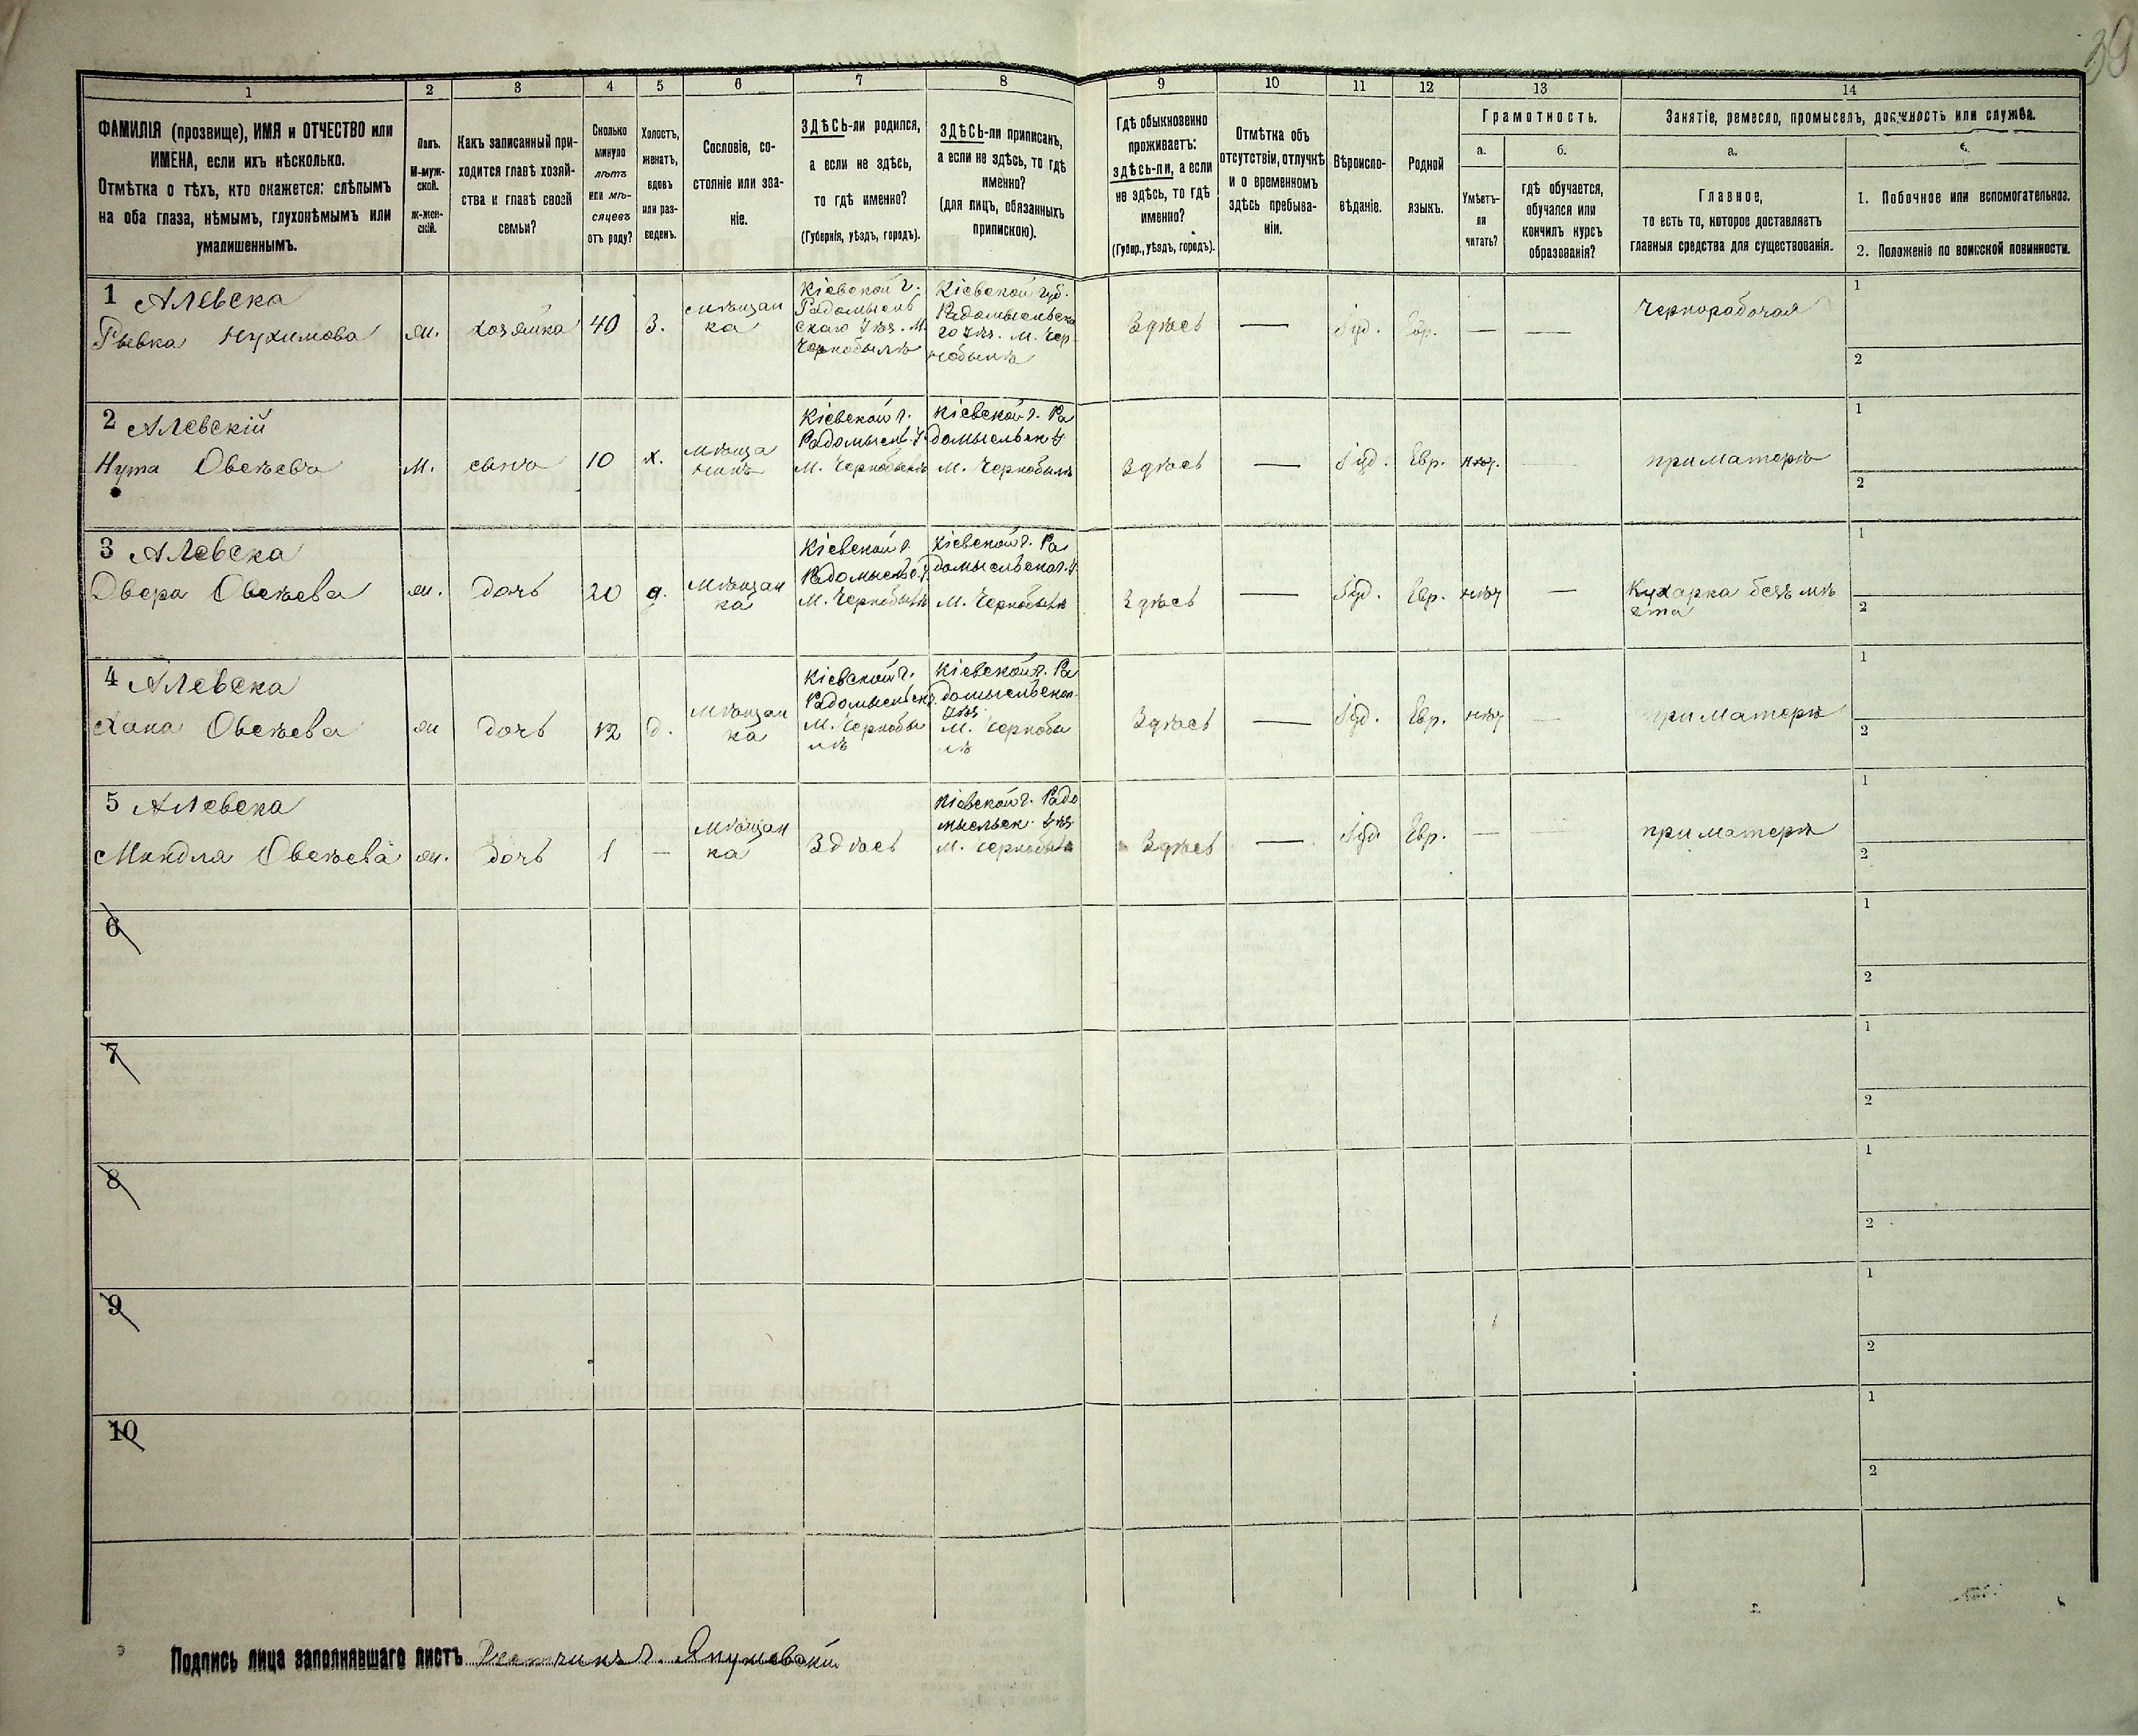 39
1 2 3 4 5 6 7 8 9 10 11 12 13 14
ФАМИЛІЯ (прозвище), ИМЯ и ОТЧЕСТВО или
ИМЕНА, если ихъ нѣсколько.
Отмѣтка о тѣхъ, кто окажется: слѣпымъ
на оба глаза, нѣмымъ, глухонѣмымъ или
умалишеннымъ.
Полъ.
М-муж-
ской.
Ж-жен-
скій.
Какъ записанный при-
ходится главѣ хозяй-
ства и главѣ своей
семьи?
Сколько
минуло
лѣтъ
или мѣ-
сяцевъ
отъ роду?
Холостъ,
женатъ,
вдовъ
или раз-
веденъ.
Сословіе, со-
стояніе или зва-
ніе.
ЗДѢСЬ-ли родился,
а если не здѣсь,
то гдѣ именно?
(Губернія, уѣздъ, городъ).
ЗДѢСЬ-ли приписанъ,
а если не здѣсь, то гдѣ
именно?
(для лицъ, обязанныхъ
припискою).
Гдѣ обыкновенно
проживаетъ:
здѣсь-ли, а если
не здѣсь, то гдѣ
именно?
(Губер., уѣздъ, городъ).
Отмѣтка объ
отсутствіи, отлучкѣ
и о временномъ
здѣсь пребыва-
ніи.
Вѣроиспо-
вѣданіе.
Родной
языкъ.
Грамотность.
а.
Умѣетъ-
ли
читать?
б.
гдѣ обучается,
обучался или
кончилъ курсъ
образованія?
Занятіе, ремесло, промыселъ, должность или служба.
а.
Главное,
то есть то, которое доставляетъ
главныя средства для существованія.
б.
1. Побочное или вспомогательное.
2. Положеніе по воинской повинности.
1 Алевска
Рывка Нухимова
ж.
хозяйка
40
З.
мѣщан
ка
Кіевской г.
Радомысль
скаго Уѣз. М.
Чернобылѣ
Кіевской губ.
Радомысльска
го Уѣз. М. Чер
нобылѣ
Здѣсь
—
Іуд.
Евр.
—
—
Чернорабочая
1
2
2 Алевскій
Нута Овсѣевъ
М.
сынъ
10
х.
мѣща
нинъ
Кіевской г.
Радомысль. У.
М. Чернобылѣ
Кіевской г. Ра
домысльск У
М. Чернобылѣ
Здѣсь
—
Іуд.
Евр.
нѣт.
—
при матерѣ
1
2
3 Алевска
Двера Овсѣева
ж.
дочь
20
д.
мѣщан
ка
Кіевской г.
Радомысльс. У.
М. Чернобылѣ
Кіевской г. Ра
домысльског. У
М. Чернобылѣ
Здѣсь
—
Іуд.
Евр.
нѣт
—
Кухарка безъ мѣ
ста
1
2
4 Алевска
Хана Овсѣева
ж
дочь
12
д.
мѣщан
ка
Кіевской г.
Радомысльск
М. Чернобы
лѣ
Кіевской г. Ра
домысльског.
Уѣз.
М. Чернобы
лѣ
Здѣсь
—
Іуд.
Евр.
нѣт
—
при матерѣ
1
2
5 Алевска
Миндля Овсѣева
ж.
дочь
1
—
мѣщан
ка
Здѣсь
Кіевской г. Радо
мысльск. Уѣз
М. Чернобылѣ
Здѣсь
—
Іуд
Евр.
—
—
при матерѣ
1
2
6
1
2
7
1
2
8
1
2
9
1
2
10
1
2
Подпись лица заполнявшаго листъ